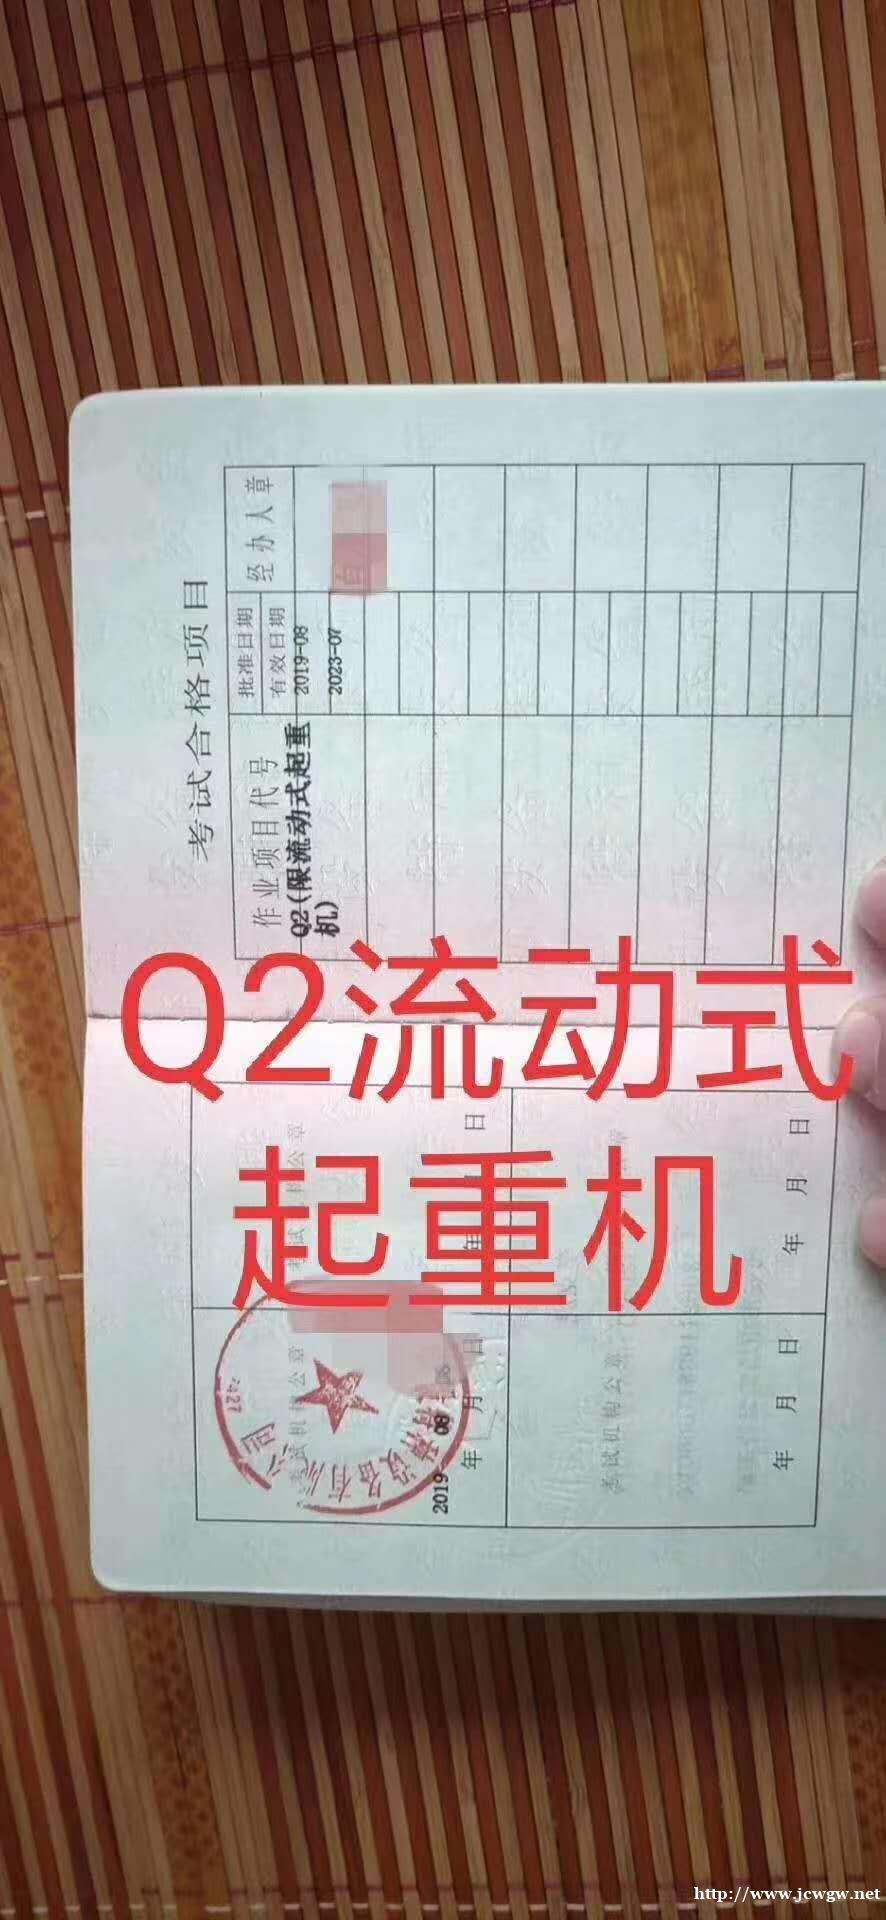 考试合格项目
作业项目代号
批准日期
有效日期
经办人章
Q2(限流动式起重
机)
2019-08
2023-07
Q2流动式
起重机
考试机构公章
2019 08
年 月 日
考试机构公章
年 月 日
考试机构公章
年 月 日
年 月 日
特种设备有
公司
3427
http://www.jcwgw.net